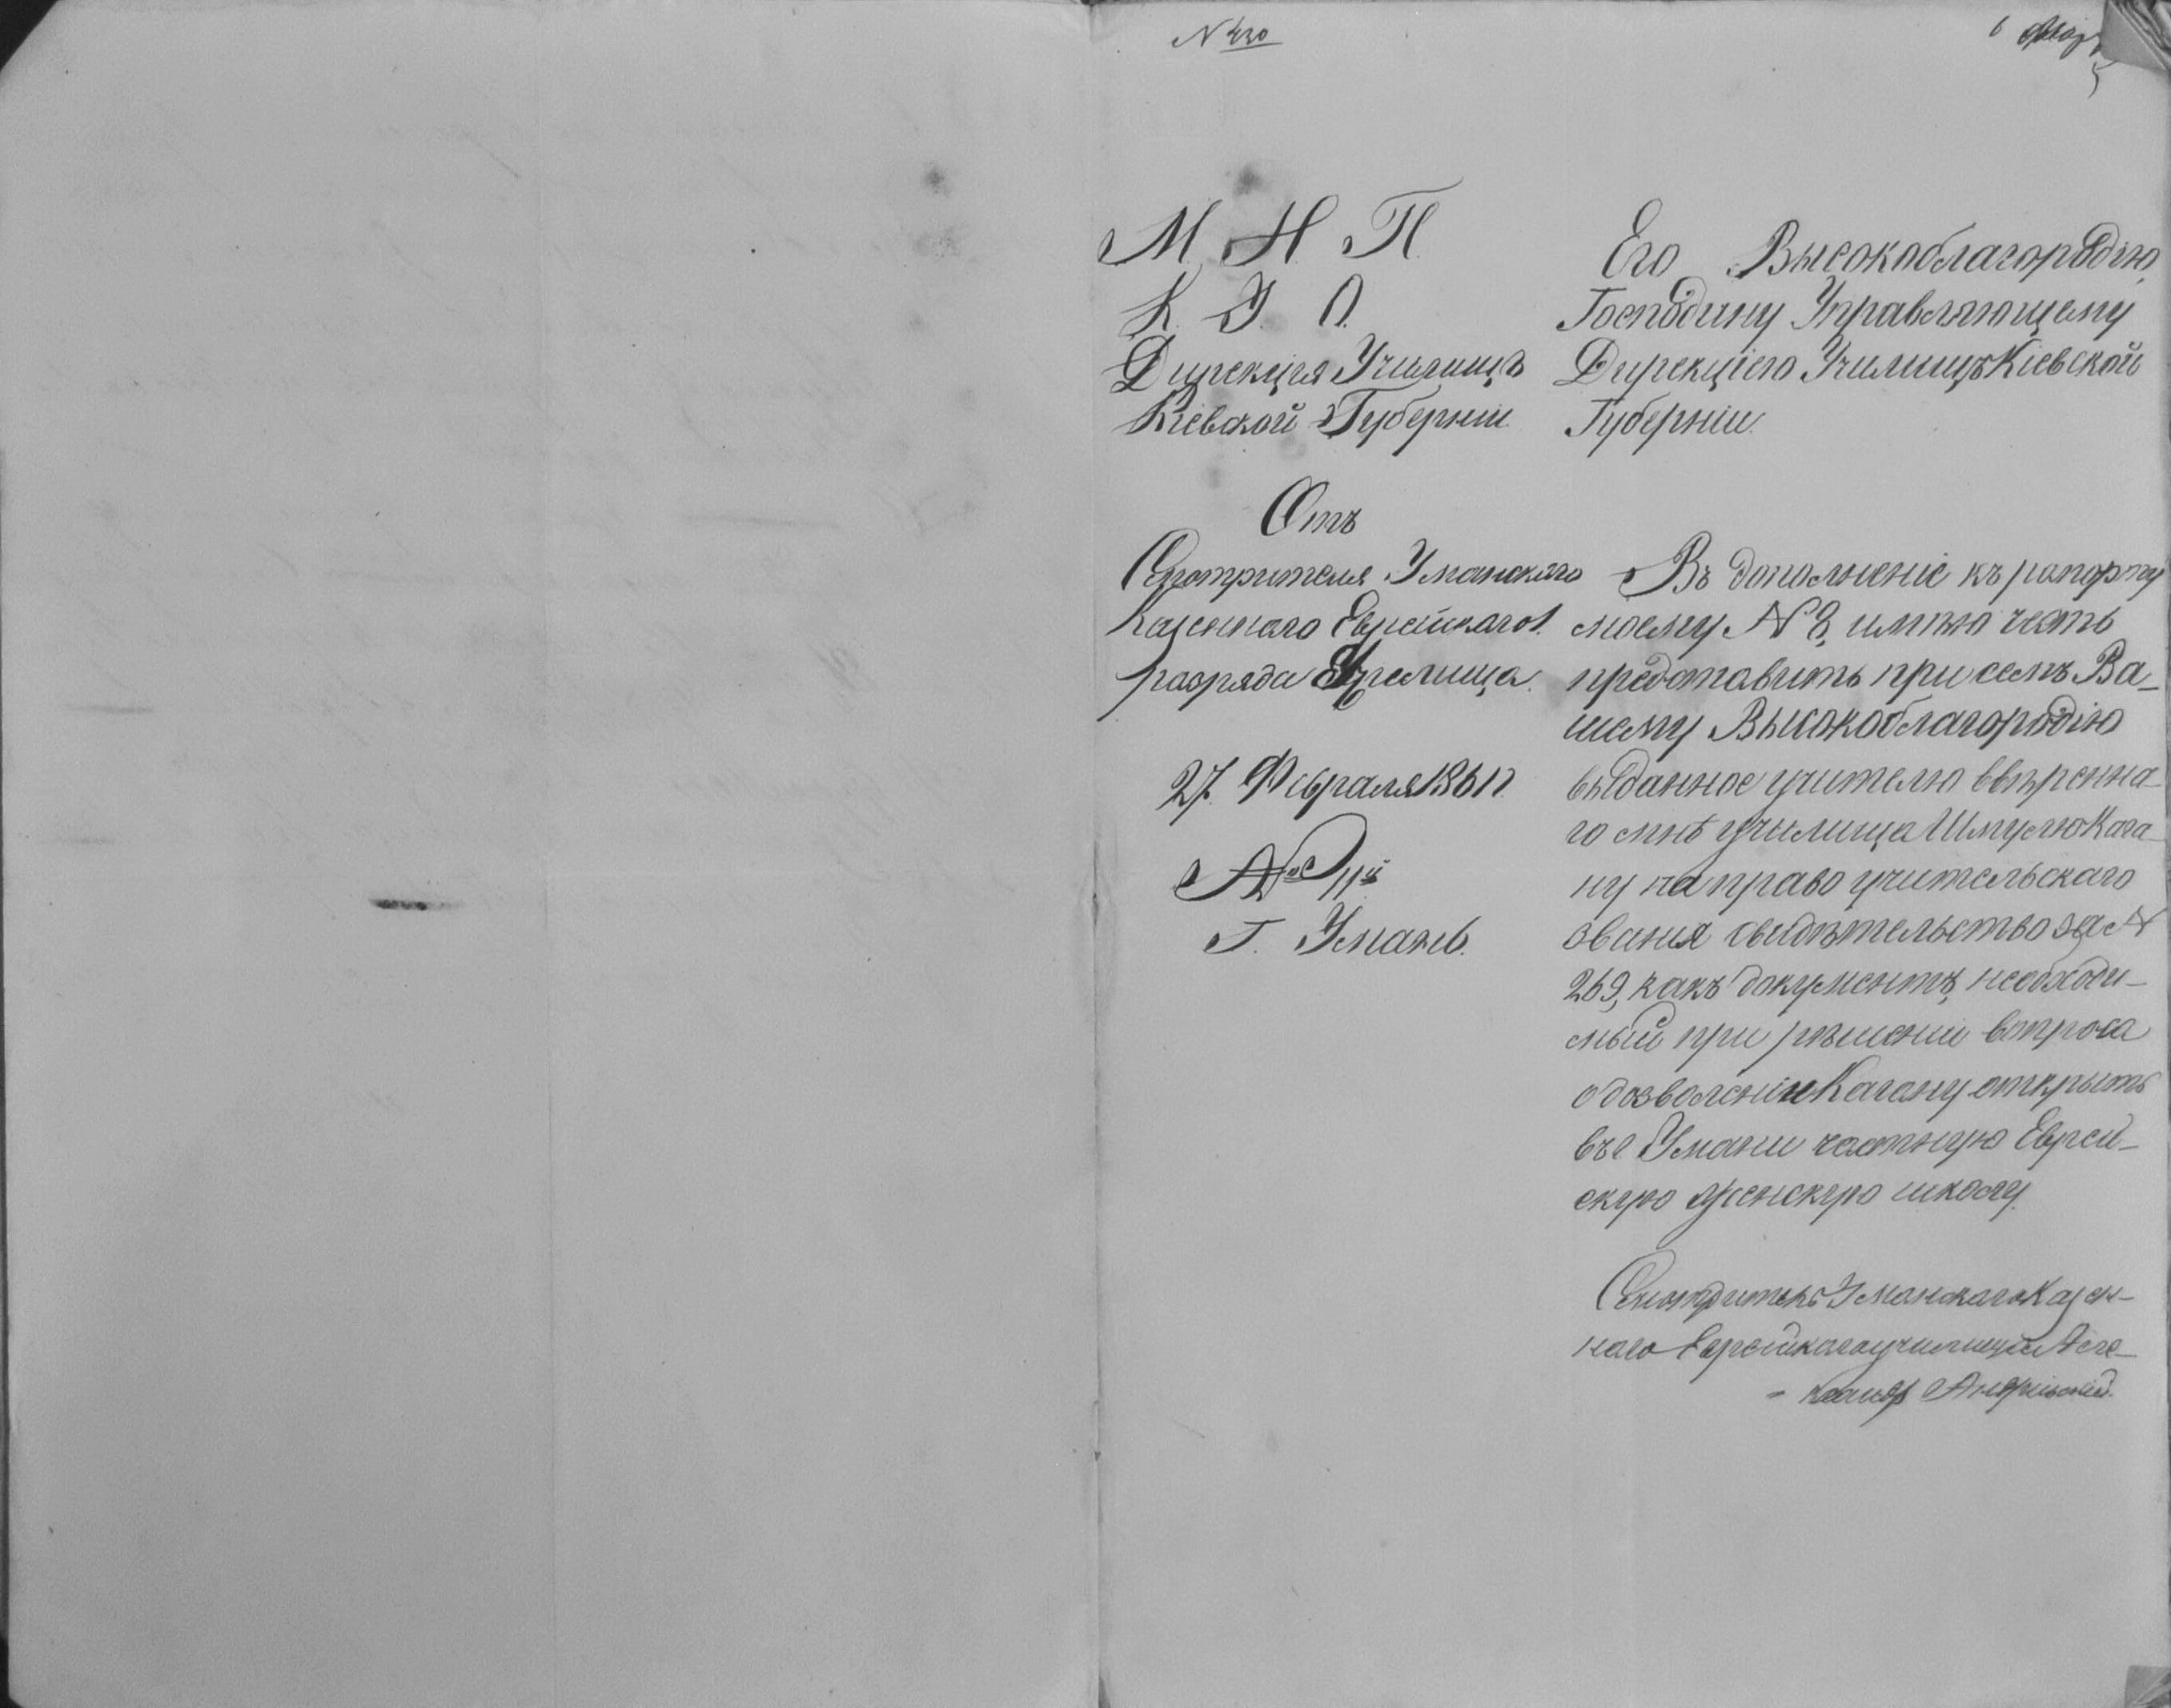 N 430
6 Мар
М. Н. П.
К. У. О.
Дирекція Училищъ
Кіевской Губерніи.
Отъ
Смотрителя Уманскаго
Казеннаго Еврейскаго 1.
разряда Училища.
27. Февраля 1861 г.
№ 11й
Г. Умань.
Его Высокоблагородію,
Господину Управляющему
Дирекціею Училищъ Кіевской
Губерніи.
Въ дополненіе къ рапорту
моему N 8, имѣю честь
представить при семъ Ва-
шему Высокоблагородію
выданное учителю ввѣренна-
го мнѣ училища Шмулю Кага-
ну на право учительскаго
званія свидѣтельство за N
269, какъ документъ, необходи-
мый при рѣшеніи вопроса
о дозволеніи Кагану открыть
въ г. Умани частную Еврей-
скую женскую школу.
Смотритель Уманскаго Казен-
наго Еврейскаго училища Але-
- ксандр Андріевскій.